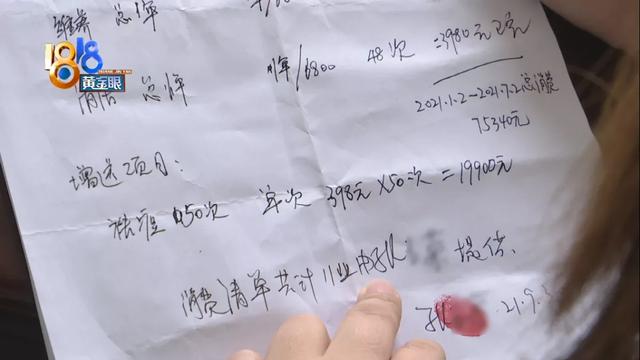 总淖
1818
黄金眼
年/6800 48次 =3980元
总淖
2021.1.2~2021.7.2总消费
75340元
增送项目:
祛痘 50次 单次 398元×50次=19900元
消费清单共计11 由孔 提供.
孔 21.9.3